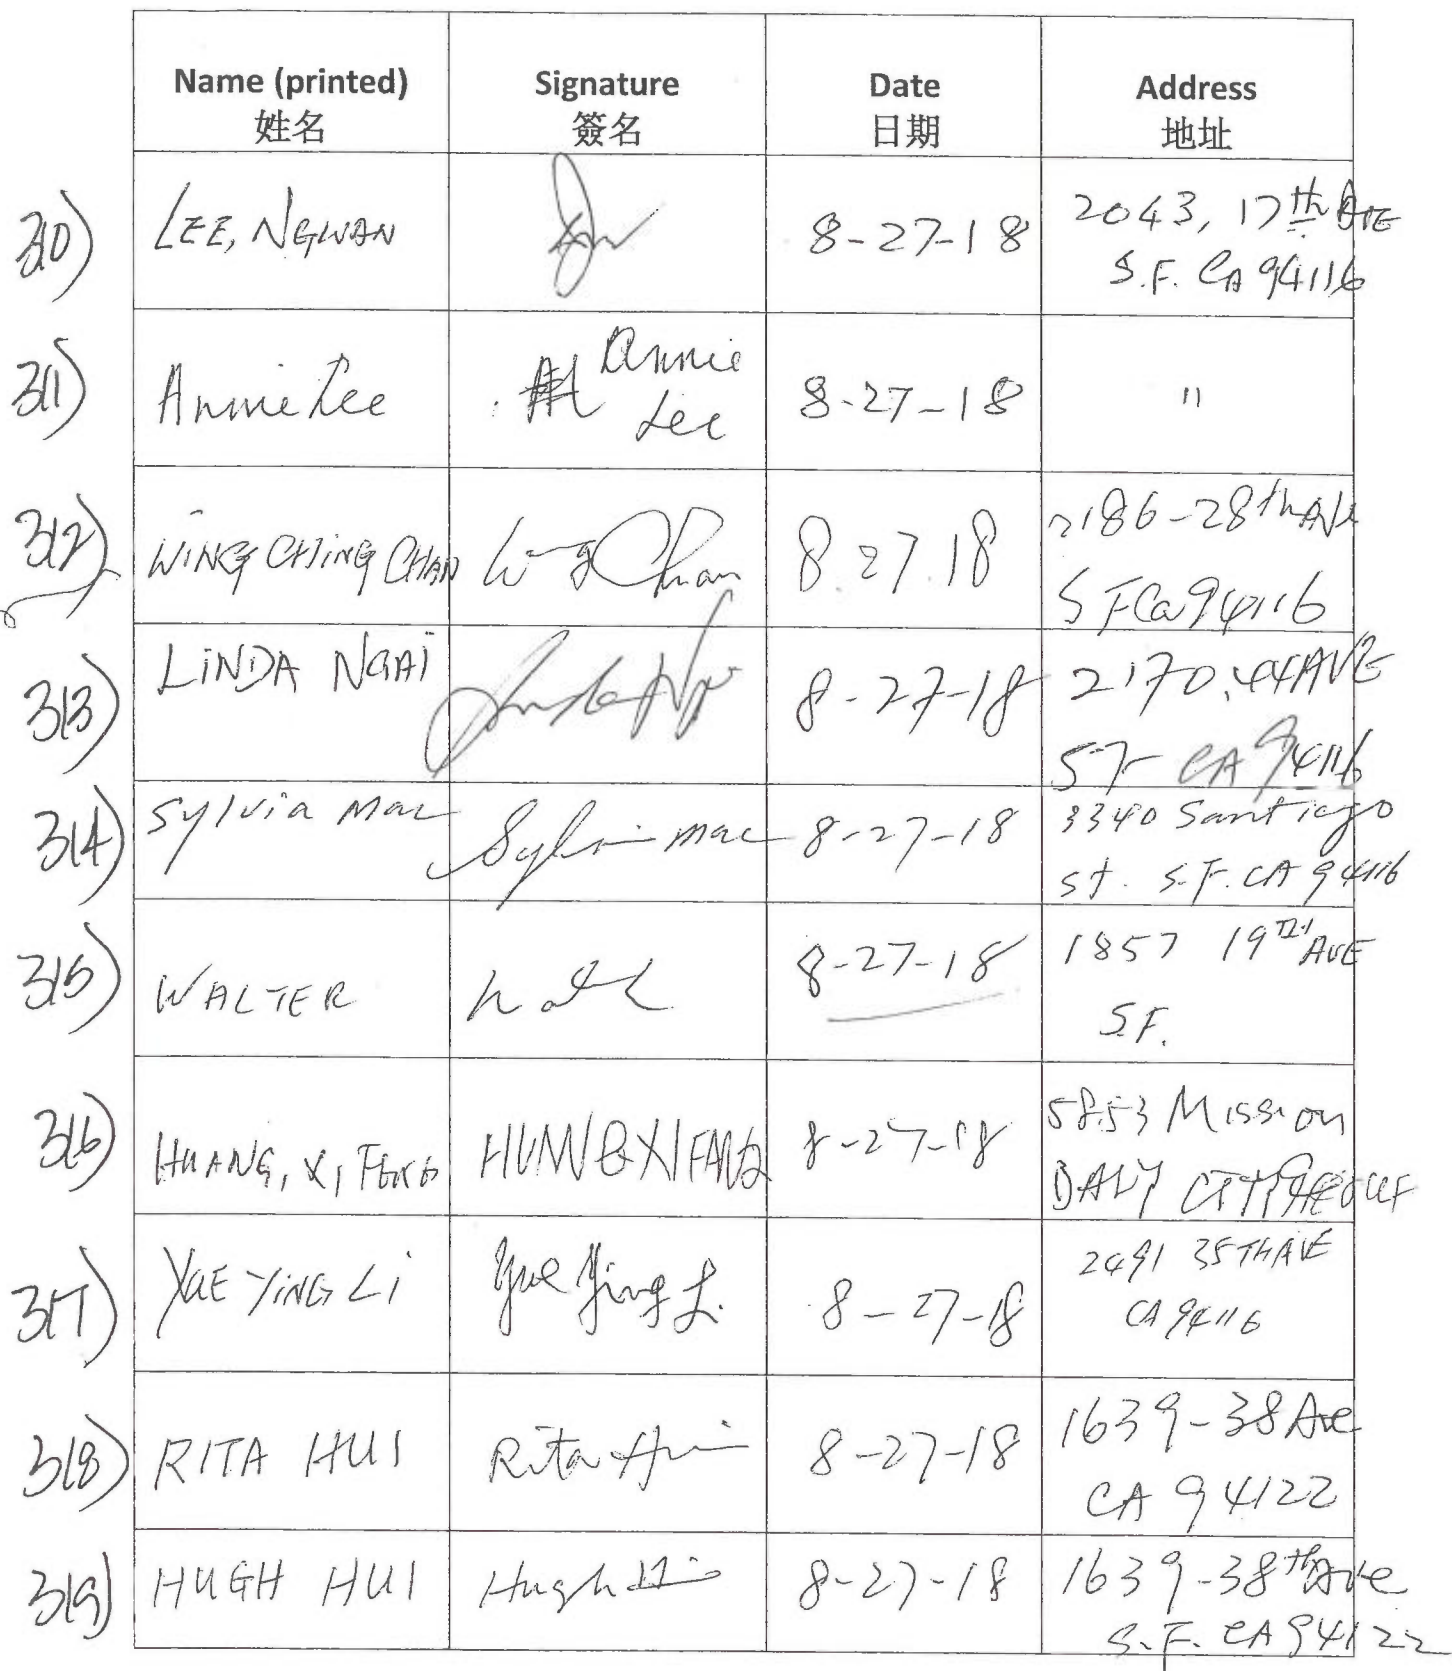 Name (printed) Signature Date Address
姓名 簽名 日期 地址
310) LEE, NGWAN 8-27-18 2043, 17th AVE
S.F. CA 94116
311) Annie Lee Annie Lee 8-27-18 "
312) WING CHING CHAN Wing Chan 8.27.18 2186-28th AVE
S F Ca 94116
313) LINDA NGAI Linda Ngai 8-27-18 2170, 44 AVE
SF CA 94116
314) Sylvia Mac Sylvia Mac 8-27-18 3340 Santiago
St. S.F. CA 94116
315) WALTER 8-27-18 1857 19TH AVE
S.F.
316) HUANG, XI FENG 8-27-18 5853 Mission
DALY CITY
317) YUE YING LI Yue Ying L. 8-27-18 2491 35TH AVE
CA 94116
318) RITA HUI Rita Hui 8-27-18 1639-38 Ave
CA 94122
319) HUGH HUI Hugh Hui 8-27-18 1639-38th Ave
S.F. CA 94122